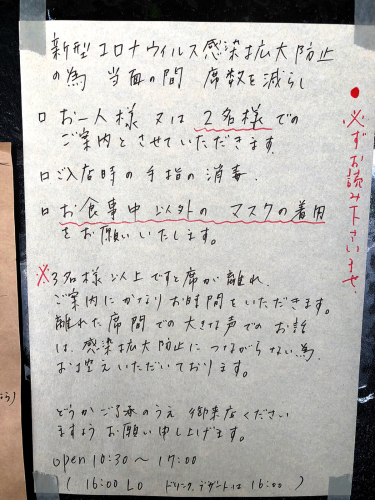 新型コロナウィルス感染拡大防止
の為 当面の間 席数を減らし
□ お一人様 又は 2名様での
ご案内とさせていただきます。
□ ご入店時の手指の消毒.
□ お食事中以外の マスクの着用
をお願いいたします。
※3名様以上ですと席が離れ、
ご案内にかなりお時間をいただきます。
離れた席間での大きな声でのお話
は、感染拡大防止につながらない為、
お控えいただいております。
どうかご了承のうえ 御来店ください
ますよう お願い申し上げます。
open 10:30〜17:00
( 16:00 LO ドリンク、デザートは 16:00 )
● 必ずお読み下さいませ.